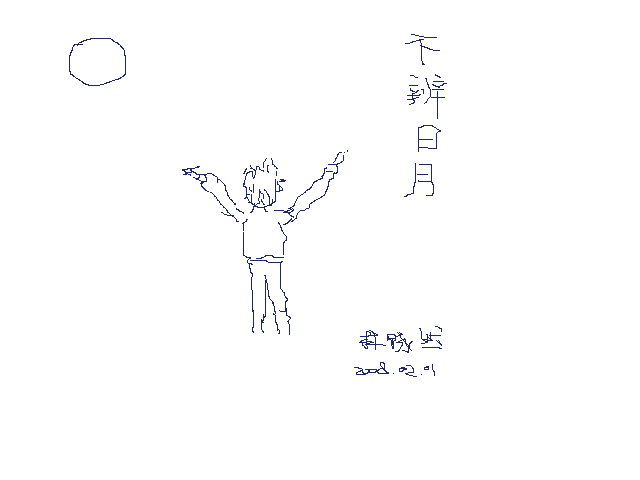 不辨日月
2008.02.01